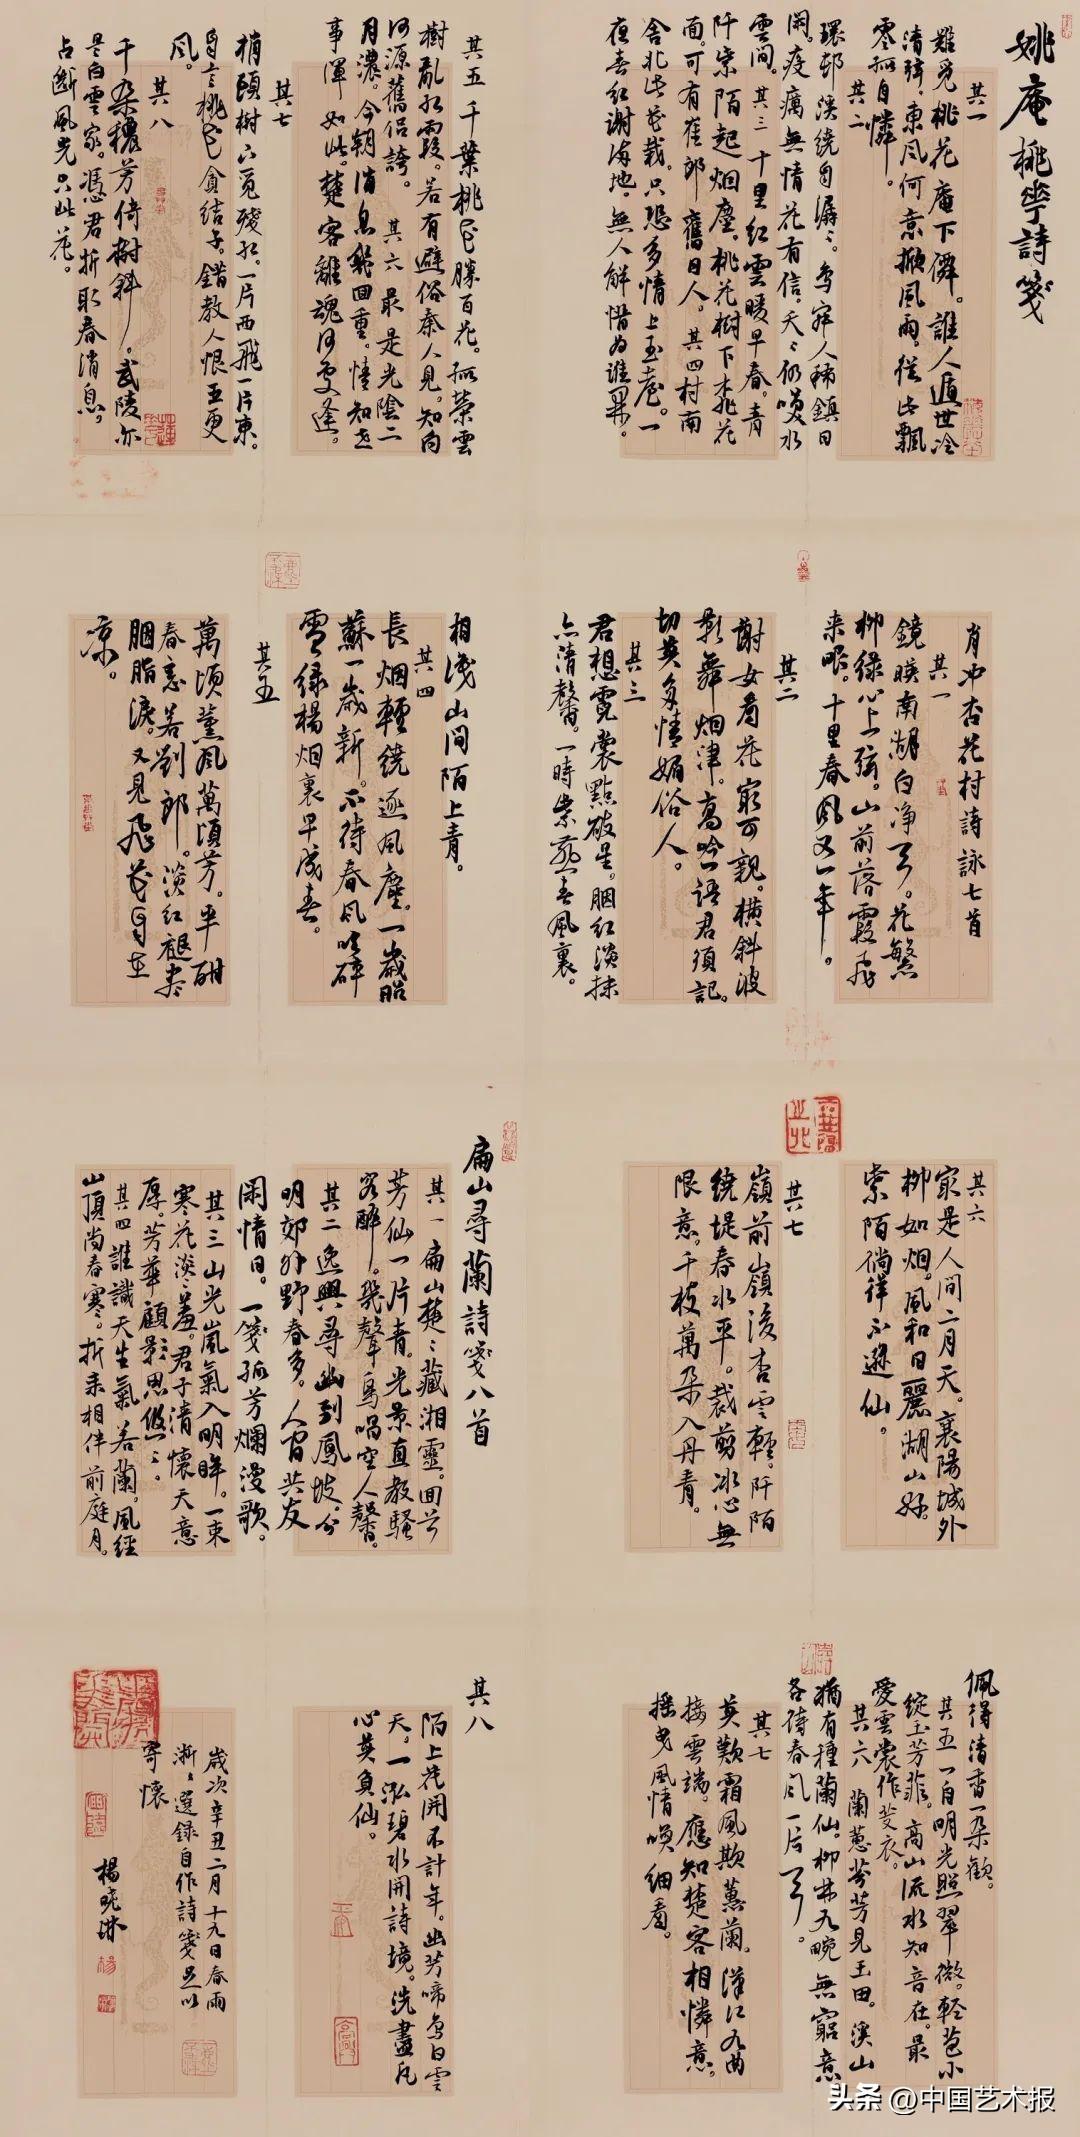 姚庵桃華詩箋
其一
難覓桃花庵下僊。誰人遁世冷
清彈。東風何意撼風雨。從此飄
零孤自憐。
其二
環邨溪繞自潺〻。鳥寂人稀鎮日
閑。疫癘無情花有信。天〻仍喚水
雲間。其三 十里紅雲暖早春。青
阡紫陌起烟塵。桃花樹下桃花
面。可有崔郎舊日人。其四 村南
舍北皆花栽。只恐多情上玉臺。一
夜春紅謝滿地。無人解惜為誰
其五 千葉桃花勝百花。孤榮雲
樹亂紅霞。若有避俗秦人見。知向
河源舊侶誇。其六 最是光陰二
月濃。今朝消息幾回重。情知世
事渾如此。楚客離魂何處逢。
其七
梢頭樹下覓殘紅。一片西飛一片東。
自言桃花貪結子。錯教人恨五更
風。
其八
千朵穠芳倚樹斜。武陵亦
是白雲家。憑君折取春消息。
占斷風光只此花。
肖冲杏花村詩詠七首
其一
鏡暎南湖白净天。花繁
柳綠心上弦。山前落霞飛
来眼。十里春風又一年。
其二
謝女看花寂可親。橫斜波
影舞烟津。高吟一語君須記。
切莫多情媚俗人。
其三
君想霓裳點破星。胭紅淡抹
亦清馨。一時紫燕春風裏。
相淺山間陌上青。
其四
長烟輕繞逐風塵。一歲昭
蘇一歲新。不待春風吹碎
雪。綠楊烟裏早成春。
其五
萬頃薰風萬頃芳。半酣
春意若劉郎。淡紅褪盡
胭脂淚。又見飛花自在
凉。
其六
寂是人間二月天。襄陽城外
柳如烟。風和日麗湖山好。
紫陌徜徉不遜仙。
其七
嶺前嶺後杏雲輕。阡陌
繞堤春水平。裁剪冰心無
限意。千枝萬朵入丹青。
扁山尋蘭詩箋八首
其一 扁山楚〻藏湘靈。回首
芳仙一片青。光景直教騷
客醉。幾聲鳥唱空人馨。
其二 逸興尋幽到鳳坡。分
明郊外野春多。人間共友
閑情日。一箋孤芳爛漫歌。
其三 山光嵐氣入明眸。一束
寒花淡〻羞。君子清懷天意
厚。芳華顧影思悠〻。
其四 誰識天生氣若蘭。風經
山頂尚春寒。折来相伴前庭月。
佩得清香一朵歡。
其五 一自明光照翠微。輕苞小
綻玉芳菲。高山流水知音在。最
愛雲裳作芰衣。
其六 蘭蕙芬芳見玉田。溪山
猶有種蘭仙。柳林九畹無窮意。
各待春風一片天。
其七
莫歎霜風欺蕙蘭。漢江九曲
接雲端。應知楚客相憐意。
摇曳風情喚細看。
其八
陌上花開不計年。幽芳啼鳥白雲
天。一泓碧水開詩境。洗盡凡
心莫負仙。
歲次辛丑二月十九日春雨
淅〻選錄自作詩箋足以
寄懷
楊曉琳
头条 @中国艺术报